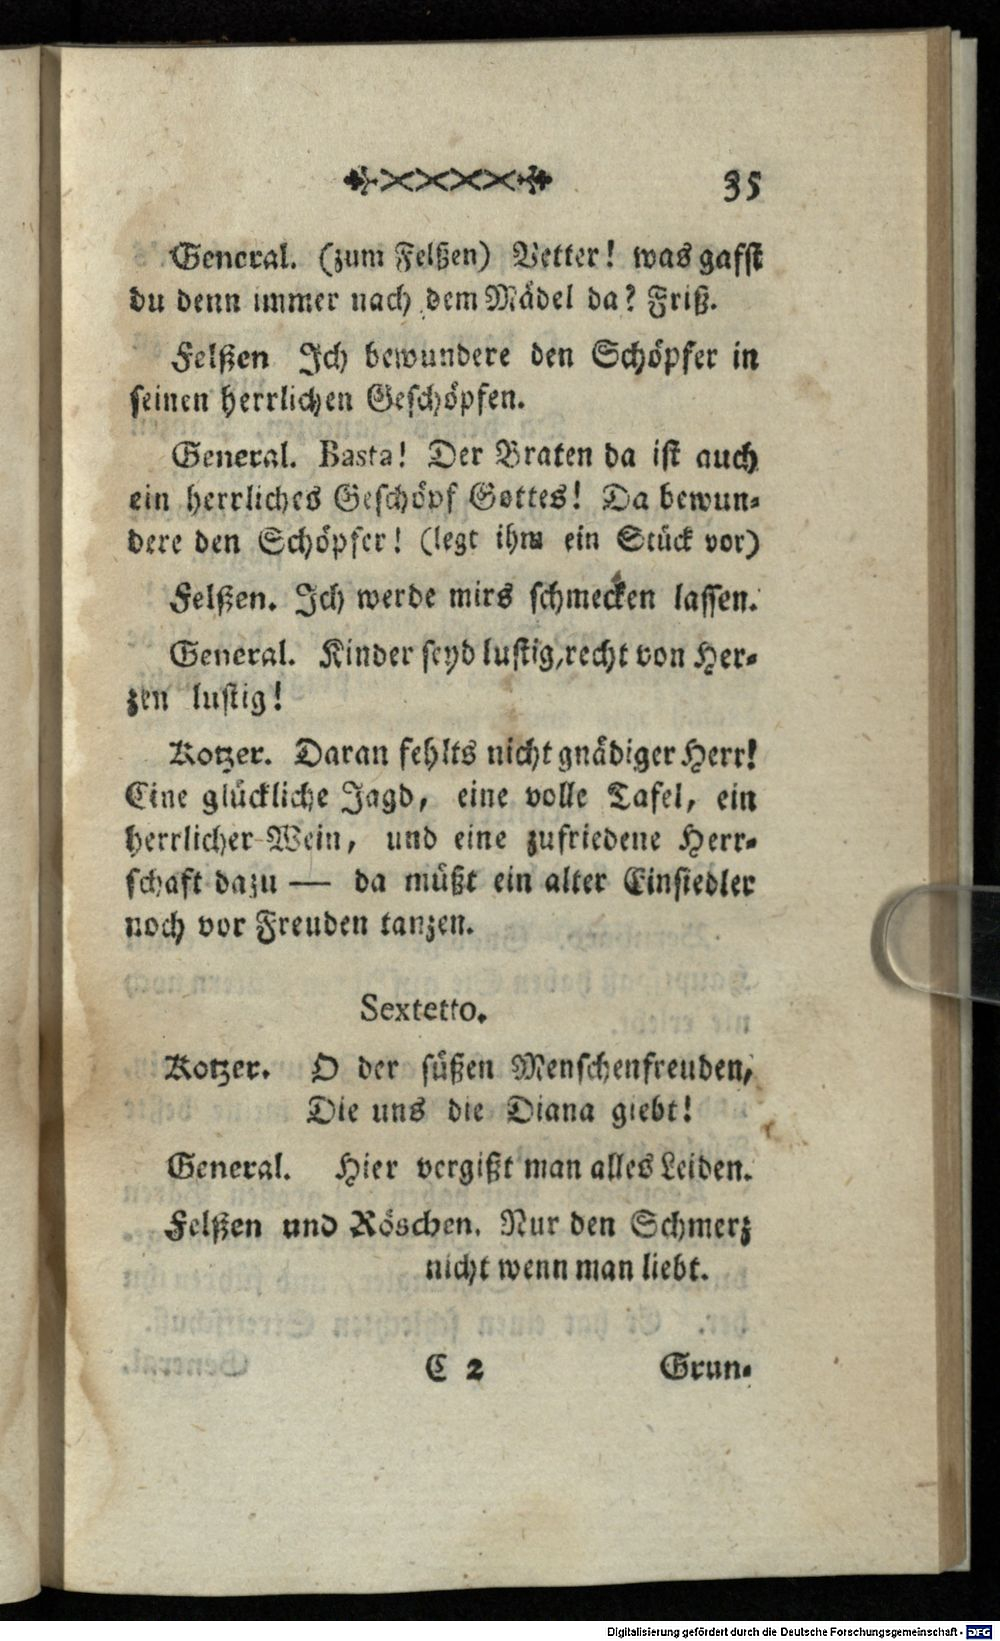 35
General. (zum Felßen) Vetter! was gaffst
du denn immer nach dem Mädel da? Friß.
Felßen Ich bewundere den Schöpfer in
seinen herrlichen Geschöpfen.
General. Basta! Der Braten da ist auch
ein herrliches Geschöpf Gottes! Da bewun-
dere den Schöpfer! (legt ihm ein Stück vor)
Felßen. Ich werde mirs schmecken lassen.
General. Kinder seyd lustig, recht von Her-
zen lustig!
Kotzer. Daran fehlts nicht gnädiger Herr!
Eine glückliche Jagd, eine volle Tafel, ein
herrlicher Wein, und eine zufriedene Herr-
schaft dazu — da müßt ein alter Einsiedler
noch vor Freuden tanzen.
Sextetto.
Kotzer. O der süßen Menschenfreuden,
Die uns die Diana giebt!
General. Hier vergißt man alles Leiden.
Felßen und Röschen. Nur den Schmerz
nicht wenn man liebt.
C 2 Grun-
Digitalisierung gefördert durch die Deutsche Forschungsgemeinschaft - DFG